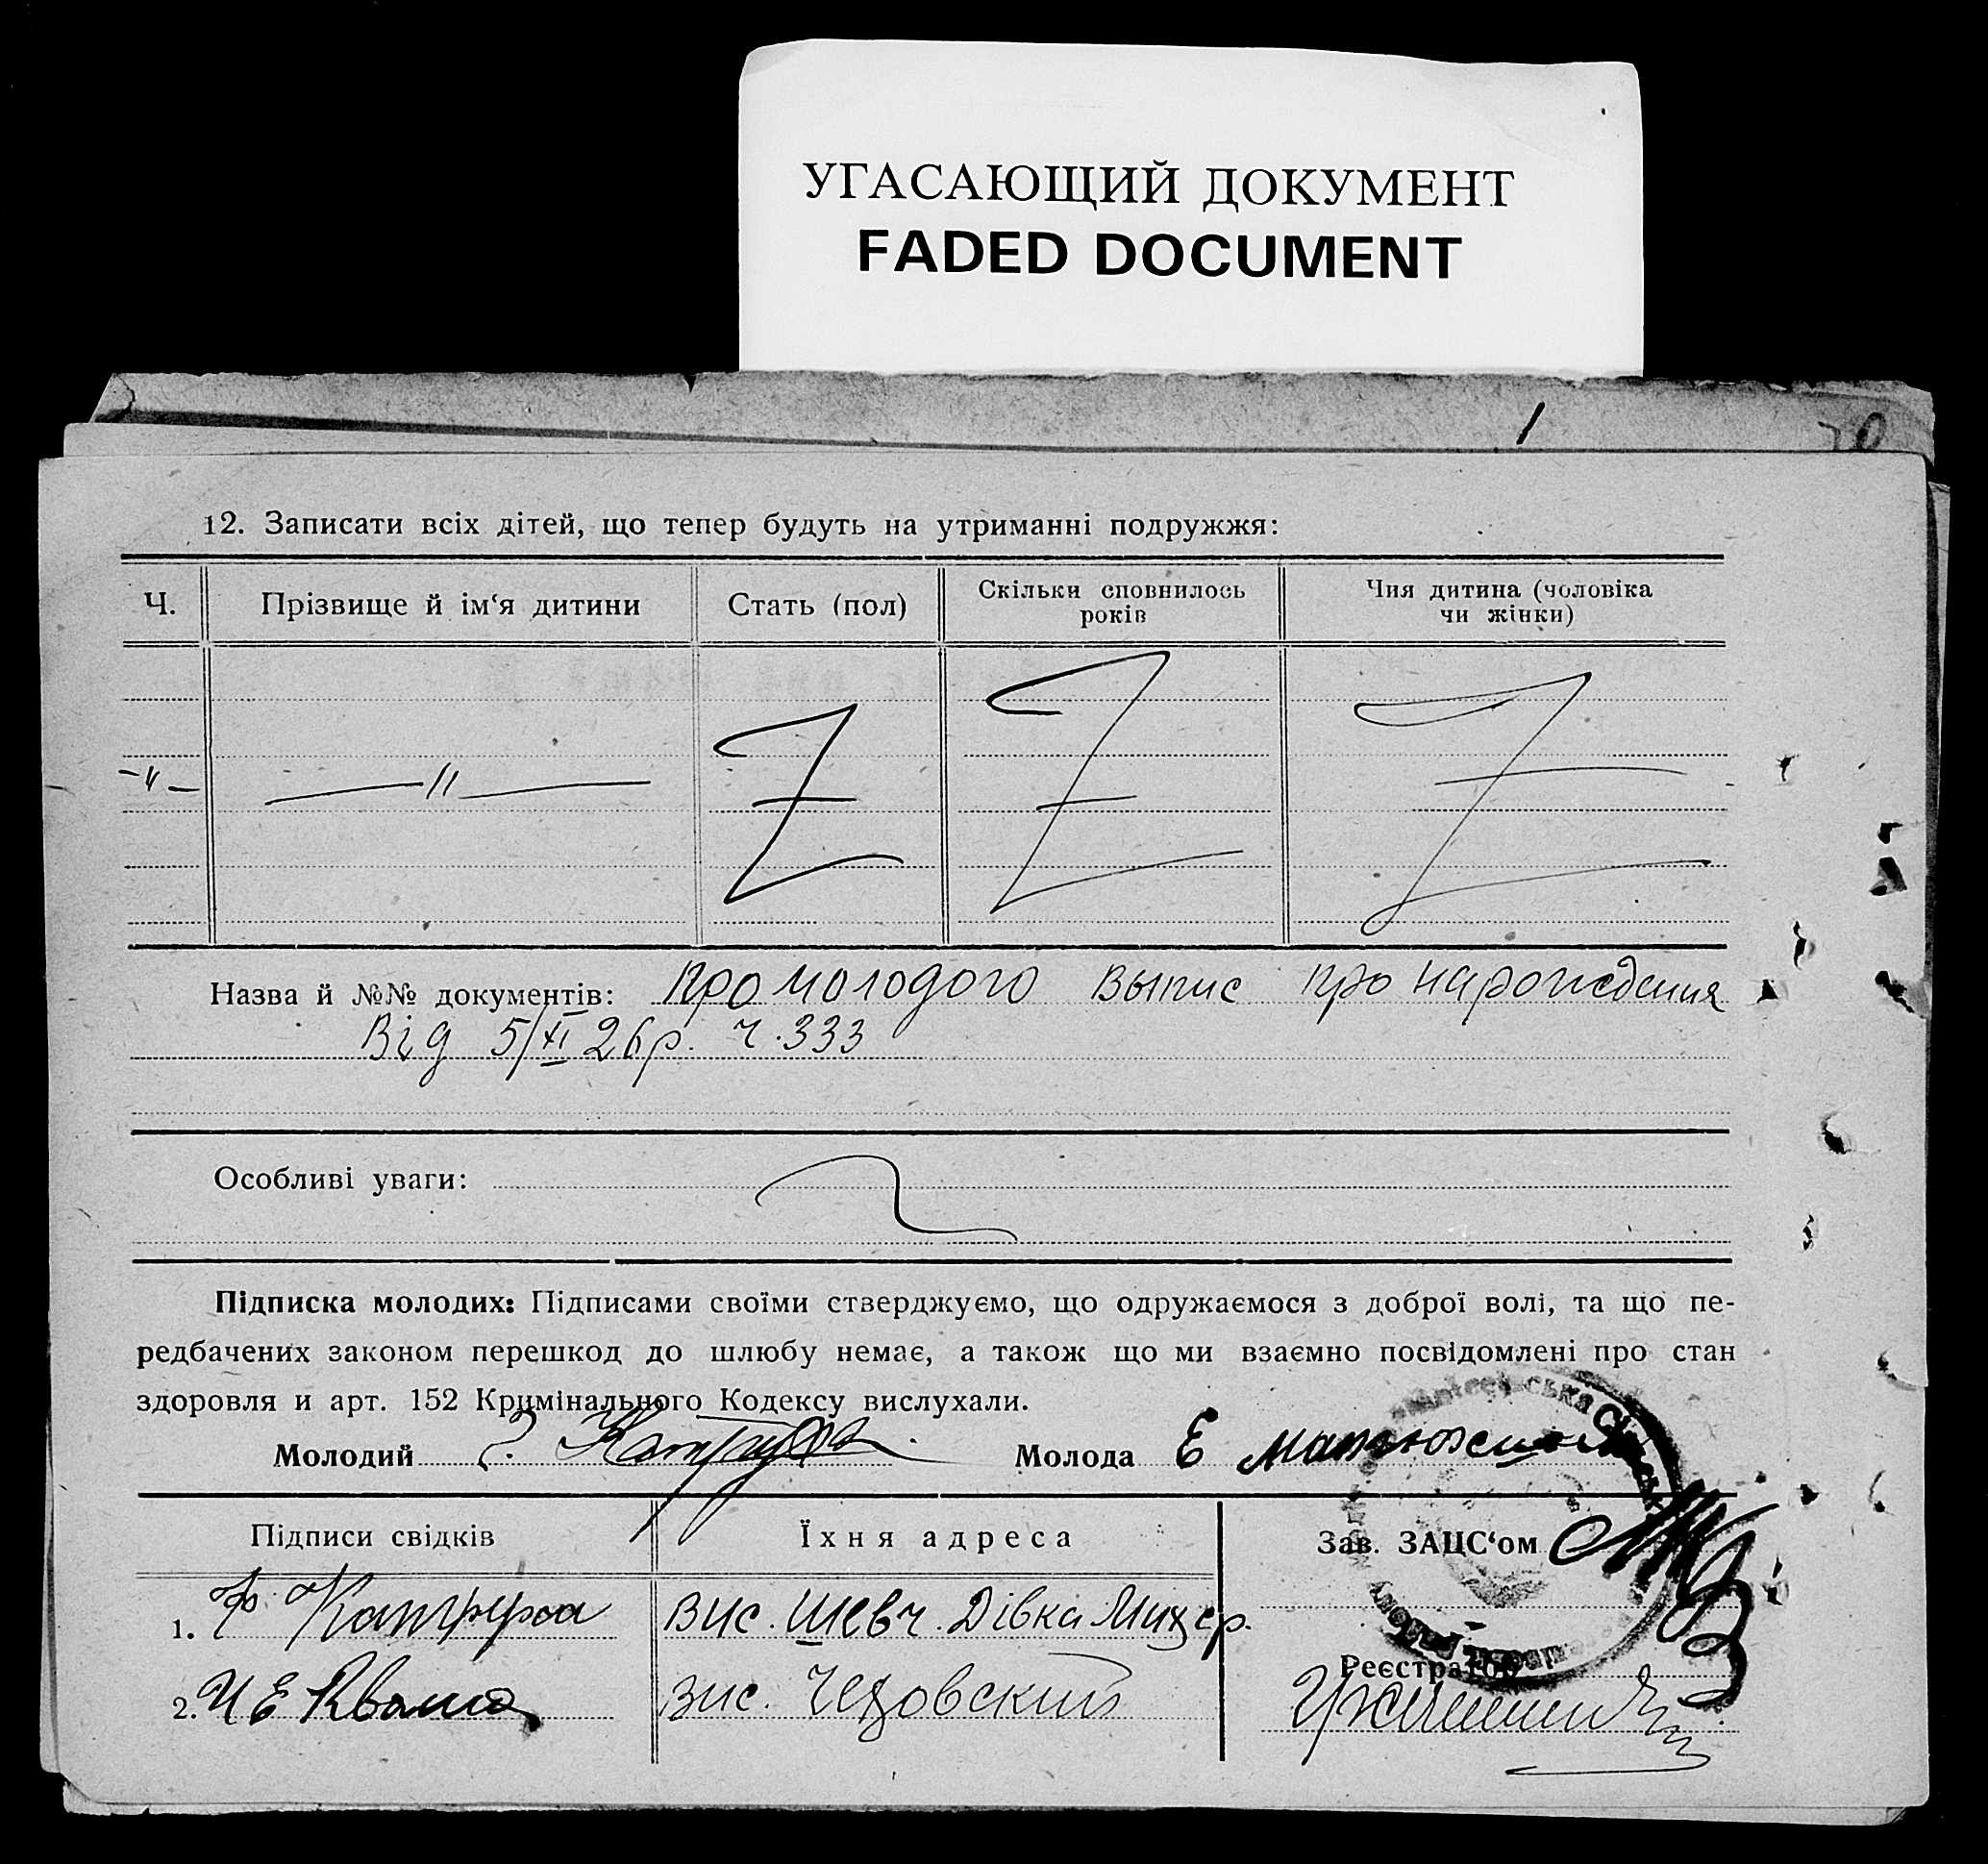 УГАСАЮЩИЙ ДОКУМЕНТ
FADED DOCUMENT
12. Записати всіх дітей, що тепер будуть на утриманні подружжя:
Ч.
Прізвище й ім‘я дитини
Стать (пол)
Скільки сповнилось
років
Чия дитина (чоловіка
чи жінки)
Назва й №№ документів: про молодого выпис про нарождения
Від 5/XI 26 р. ч. 333
Особливі уваги:
Підписка молодих: Підписами своїми стверджуємо, що одружаємося з доброї волі, та що пе-
редбачених законом перешкод до шлюбу немає, а також що ми взаємно посвідомлені про стан
здоровля и арт. 152 Кримінального Кодексу вислухали.
Молодий
Молода Е
Підписи свідків
Їхня адреса
Зав. ЗАЦС‘ом
1.
вис. Шевч. Дівка
2. И Е Кваша
вис.
Реєстратор